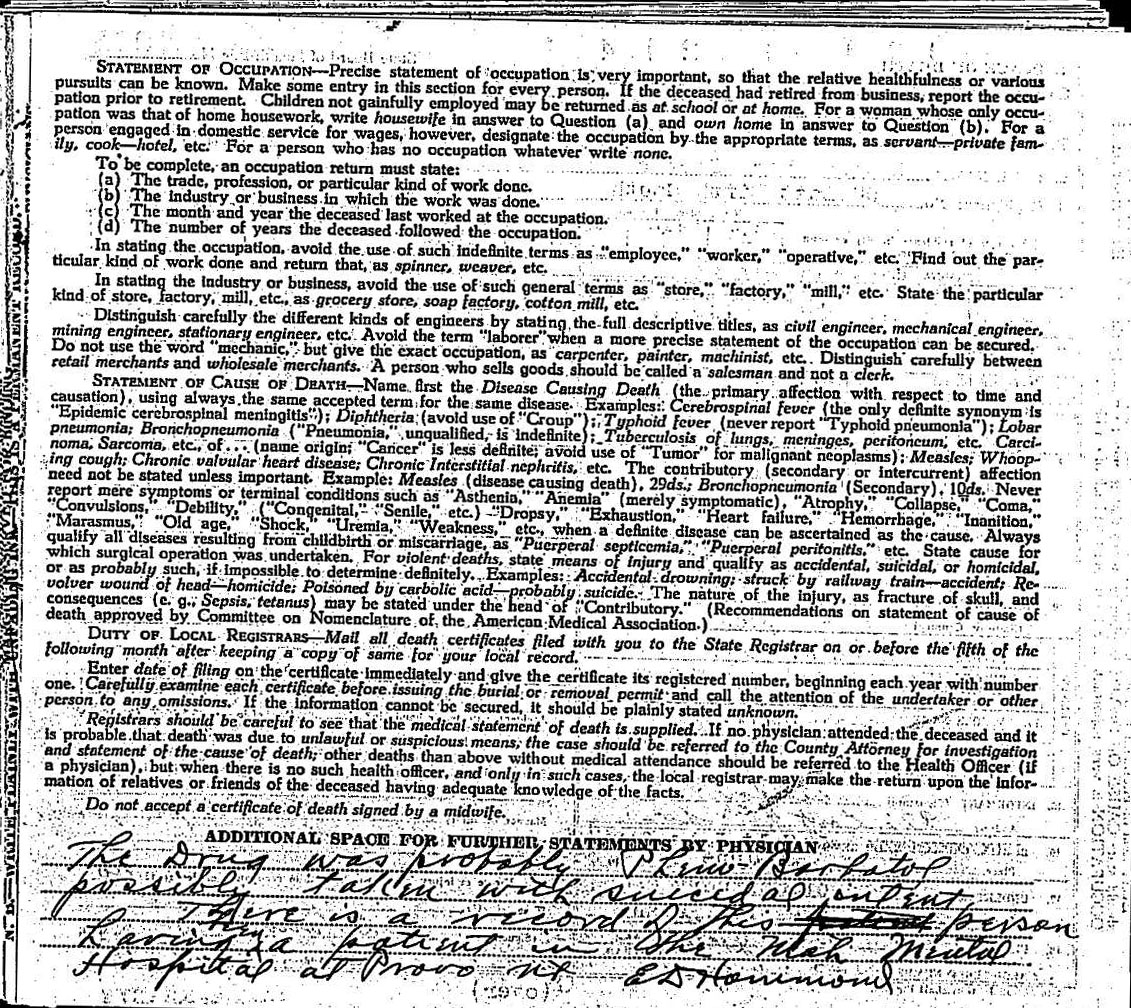 STATEMENT OF OCCUPATION—Precise statement of occupation is very important, so that the relative healthfulness or various
pursuits can be known. Make some entry in this section for every person. If the deceased had retired from business, report the occu-
pation prior to retirement. Children not gainfully employed may be returned as at school or at home. For a woman whose only occu-
pation was that of home housework, write housewife in answer to Question (a) and own home in answer to Question (b). For a
person engaged in domestic service for wages, however, designate the occupation by the appropriate terms, as servant—private fam-
ily, cook—hotel, etc. For a person who has no occupation whatever write none.
To be complete, an occupation return must state:
(a) The trade, profession, or particular kind of work done.
(b) The industry or business in which the work was done.
(c) The month and year the deceased last worked at the occupation.
(d) The number of years the deceased followed the occupation.
In stating the occupation, avoid the use of such indefinite terms as "employee," "worker," "operative," etc. Find out the par-
ticular kind of work done and return that, as spinner, weaver, etc.
In stating the industry or business, avoid the use of such general terms as "store," "factory," "mill," etc. State the particular
kind of store, factory, mill, etc., as grocery store, soap factory, cotton mill, etc.
Distinguish carefully the different kinds of engineers by stating the full descriptive titles, as civil engineer, mechanical engineer,
mining engineer, stationary engineer, etc. Avoid the term "laborer" when a more precise statement of the occupation can be secured.
Do not use the word "mechanic," but give the exact occupation, as carpenter, painter, machinist, etc. Distinguish carefully between
retail merchants and wholesale merchants. A person who sells goods should be called a salesman and not a clerk.
STATEMENT OF CAUSE OF DEATH—Name first the Disease Causing Death (the primary affection with respect to time and
causation), using always the same accepted term for the same disease. Examples: Cerebrospinal fever (the only definite synonym is
"Epidemic cerebrospinal meningitis"); Diphtheria (avoid use of "Croup"); Typhoid fever (never report "Typhoid pneumonia"); Lobar
pneumonia; Bronchopneumonia ("Pneumonia," unqualified, is indefinite); Tuberculosis of lungs, meninges, peritoneum, etc. Carci-
noma, Sarcoma, etc., of... (name origin; "Cancer" is less definite; avoid use of "Tumor" for malignant neoplasms); Measles; Whoop-
ing cough; Chronic valvular heart disease; Chronic Interstitial nephritis, etc. The contributory (secondary or intercurrent) affection
need not be stated unless important. Example: Measles (disease causing death), 29ds.; Bronchopneumonia (Secondary), 10ds. Never
report mere symptoms or terminal conditions such as "Asthenia," "Anemia" (merely symptomatic), "Atrophy," "Collapse," "Coma,"
"Convulsions," "Debility," ("Congenital," "Senile," etc.) "Dropsy," "Exhaustion," "Heart failure," "Hemorrhage," "Inanition,"
"Marasmus," "Old age," "Shock," "Uremia," "Weakness," etc., when a definite disease can be ascertained as the cause. Always
qualify all diseases resulting from childbirth or miscarriage, as "Puerperal septicemia," "Puerperal peritonitis," etc. State cause for
which surgical operation was undertaken. For violent deaths, state means of injury and qualify as accidental, suicidal, or homicidal,
or as probably such, if impossible to determine definitely. Examples: Accidental drowning; struck by railway train—accident; Re-
volver wound of head—homicide; Poisoned by carbolic acid—probably suicide. The nature of the injury, as fracture of skull, and
consequences (e. g., Sepsis, tetanus) may be stated under the head of "Contributory." (Recommendations on statement of cause of
death approved by Committee on Nomenclature of the American Medical Association.)
DUTY OF LOCAL REGISTRARS—Mail all death certificates filed with you to the State Registrar on or before the fifth of the
following month after keeping a copy of same for your local record.
Enter date of filing on the certificate immediately and give the certificate its registered number, beginning each year with number
one. Carefully examine each certificate before issuing the burial or removal permit and call the attention of the undertaker or other
person to any omissions. If the information cannot be secured, it should be plainly stated unknown.
Registrars should be careful to see that the medical statement of death is supplied. If no physician attended the deceased and it
is probable that death was due to unlawful or suspicious means, the case should be referred to the County Attorney for investigation
and statement of the cause of death; other deaths than above without medical attendance should be referred to the Health Officer (if
a physician), but when there is no such health officer, and only in such cases, the local registrar may make the return upon the infor-
mation of relatives or friends of the deceased having adequate knowledge of the facts.
Do not accept a certificate of death signed by a midwife.
ADDITIONAL SPACE FOR FURTHER STATEMENTS BY PHYSICIAN
The Drug was probably Pheno Barbatol
possibly taken with suicidal intent.
There is a record of this person
having a patient in the Utah Mental
Hospital at Provo Ut E D Hammond